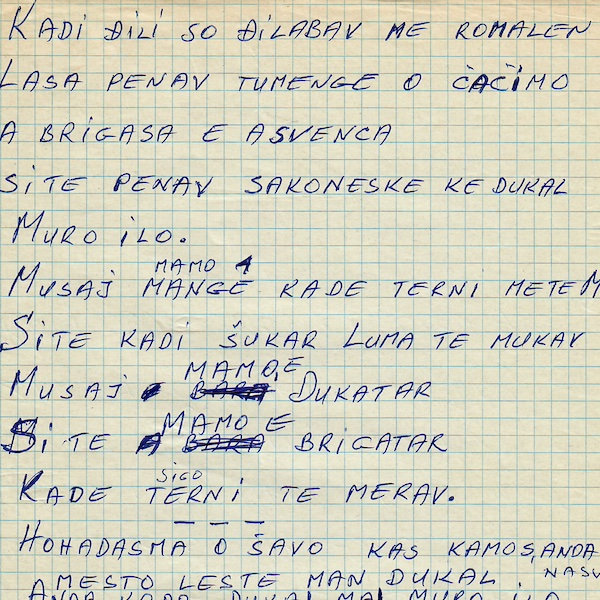 KADI ĐILI SO ĐILABAV ME ROMALEN
LASA PENAV TUMENGE O ČAČIMO
A BRIGASA E ASVENCA
SITE PENAV SAKONESKE KE DUKAL
MURO ILO.
MAMO
MUSAJ MANGE KADE TERNI METEM
SITE KADI ŠUKAR LUMA TE MUKAV
MAMO, E
MUSAJ BARA DUKATAR
MAMO E
SI TE A BARA BRIGATAR
SIGO
KADE TERNI TE MERAV.
HOHADASMA O ŠAVO KAS KAMOS, ANDA
MESTO LESTE MAN DUKAL.